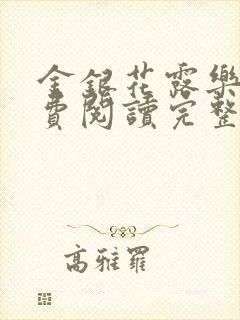 金銀花露樂
費閱讀完整
高雅羅